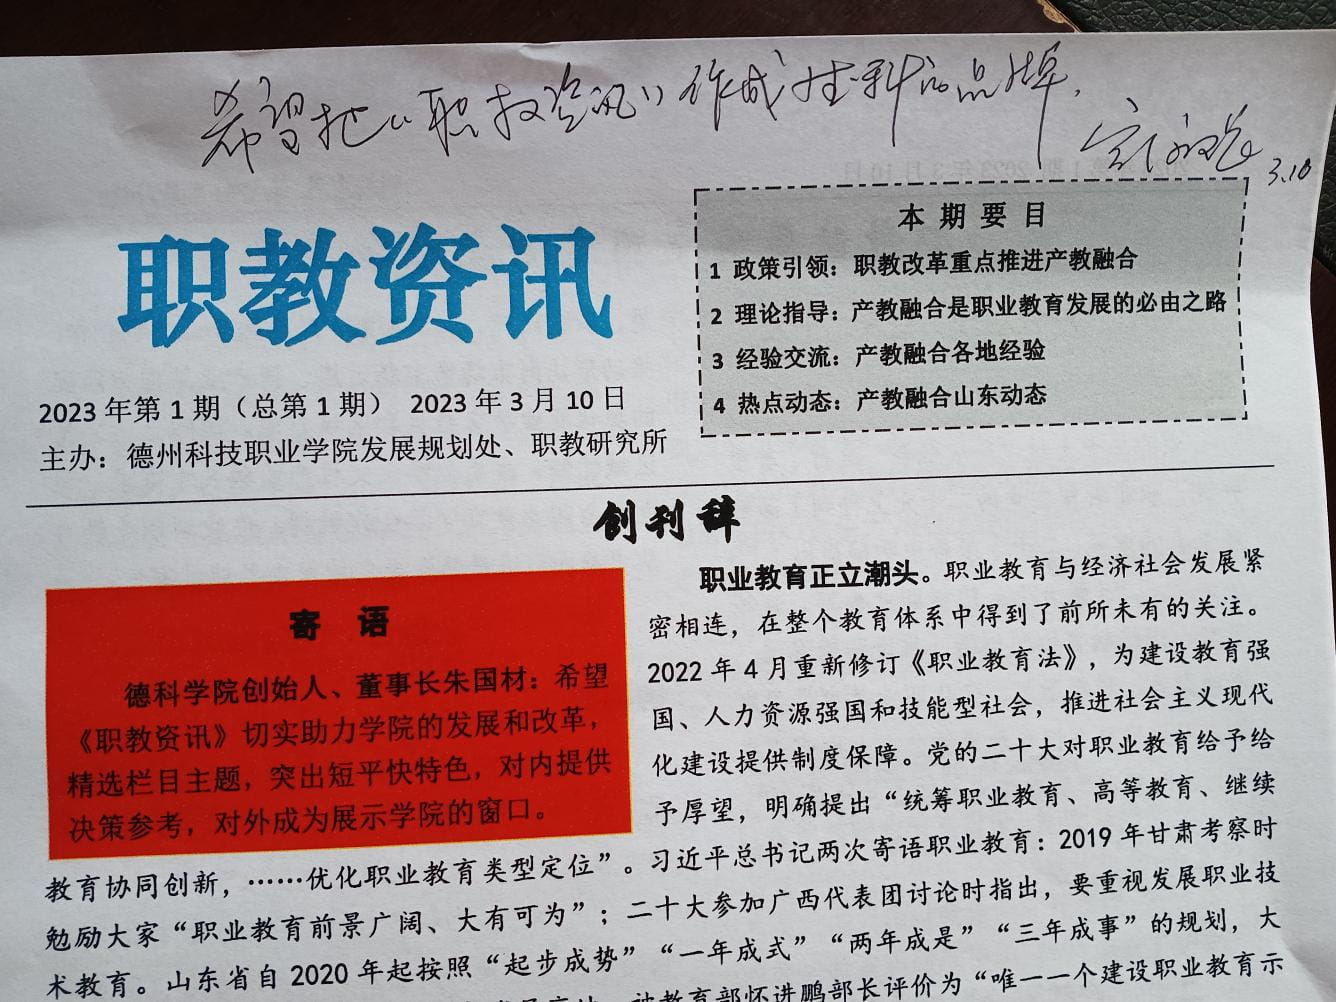 希望把《职教资讯》作成德科的品牌.
3.10
职教资讯
2023年第1期（总第1期） 2023年3月10日
主办：德州科技职业学院发展规划处、职教研究所
本期要目
1 政策引领：职教改革重点推进产教融合
2 理论指导：产教融合是职业教育发展的必由之路
3 经验交流：产教融合各地经验
4 热点动态：产教融合山东动态
创刊辞
寄 语
德科学院创始人、董事长朱国材：希望
《职教资讯》切实助力学院的发展和改革，
精选栏目主题，突出短平快特色，对内提供
决策参考，对外成为展示学院的窗口。
职业教育正立潮头。职业教育与经济社会发展紧
密相连，在整个教育体系中得到了前所未有的关注。
2022年4月重新修订《职业教育法》，为建设教育强
国、人力资源强国和技能型社会，推进社会主义现代
化建设提供制度保障。党的二十大对职业教育给予给
予厚望，明确提出“统筹职业教育、高等教育、继续
教育协同创新，……优化职业教育类型定位”。习近平总书记两次寄语职业教育：2019年甘肃考察时
勉励大家“职业教育前景广阔、大有可为”；二十大参加广西代表团讨论时指出，要重视发展职业技
术教育。山东省自2020年起按照“起步成势”“一年成式”“两年成是”“三年成事”的规划，大
被教育部怀进鹏部长评价为“唯一一个建设职业教育示